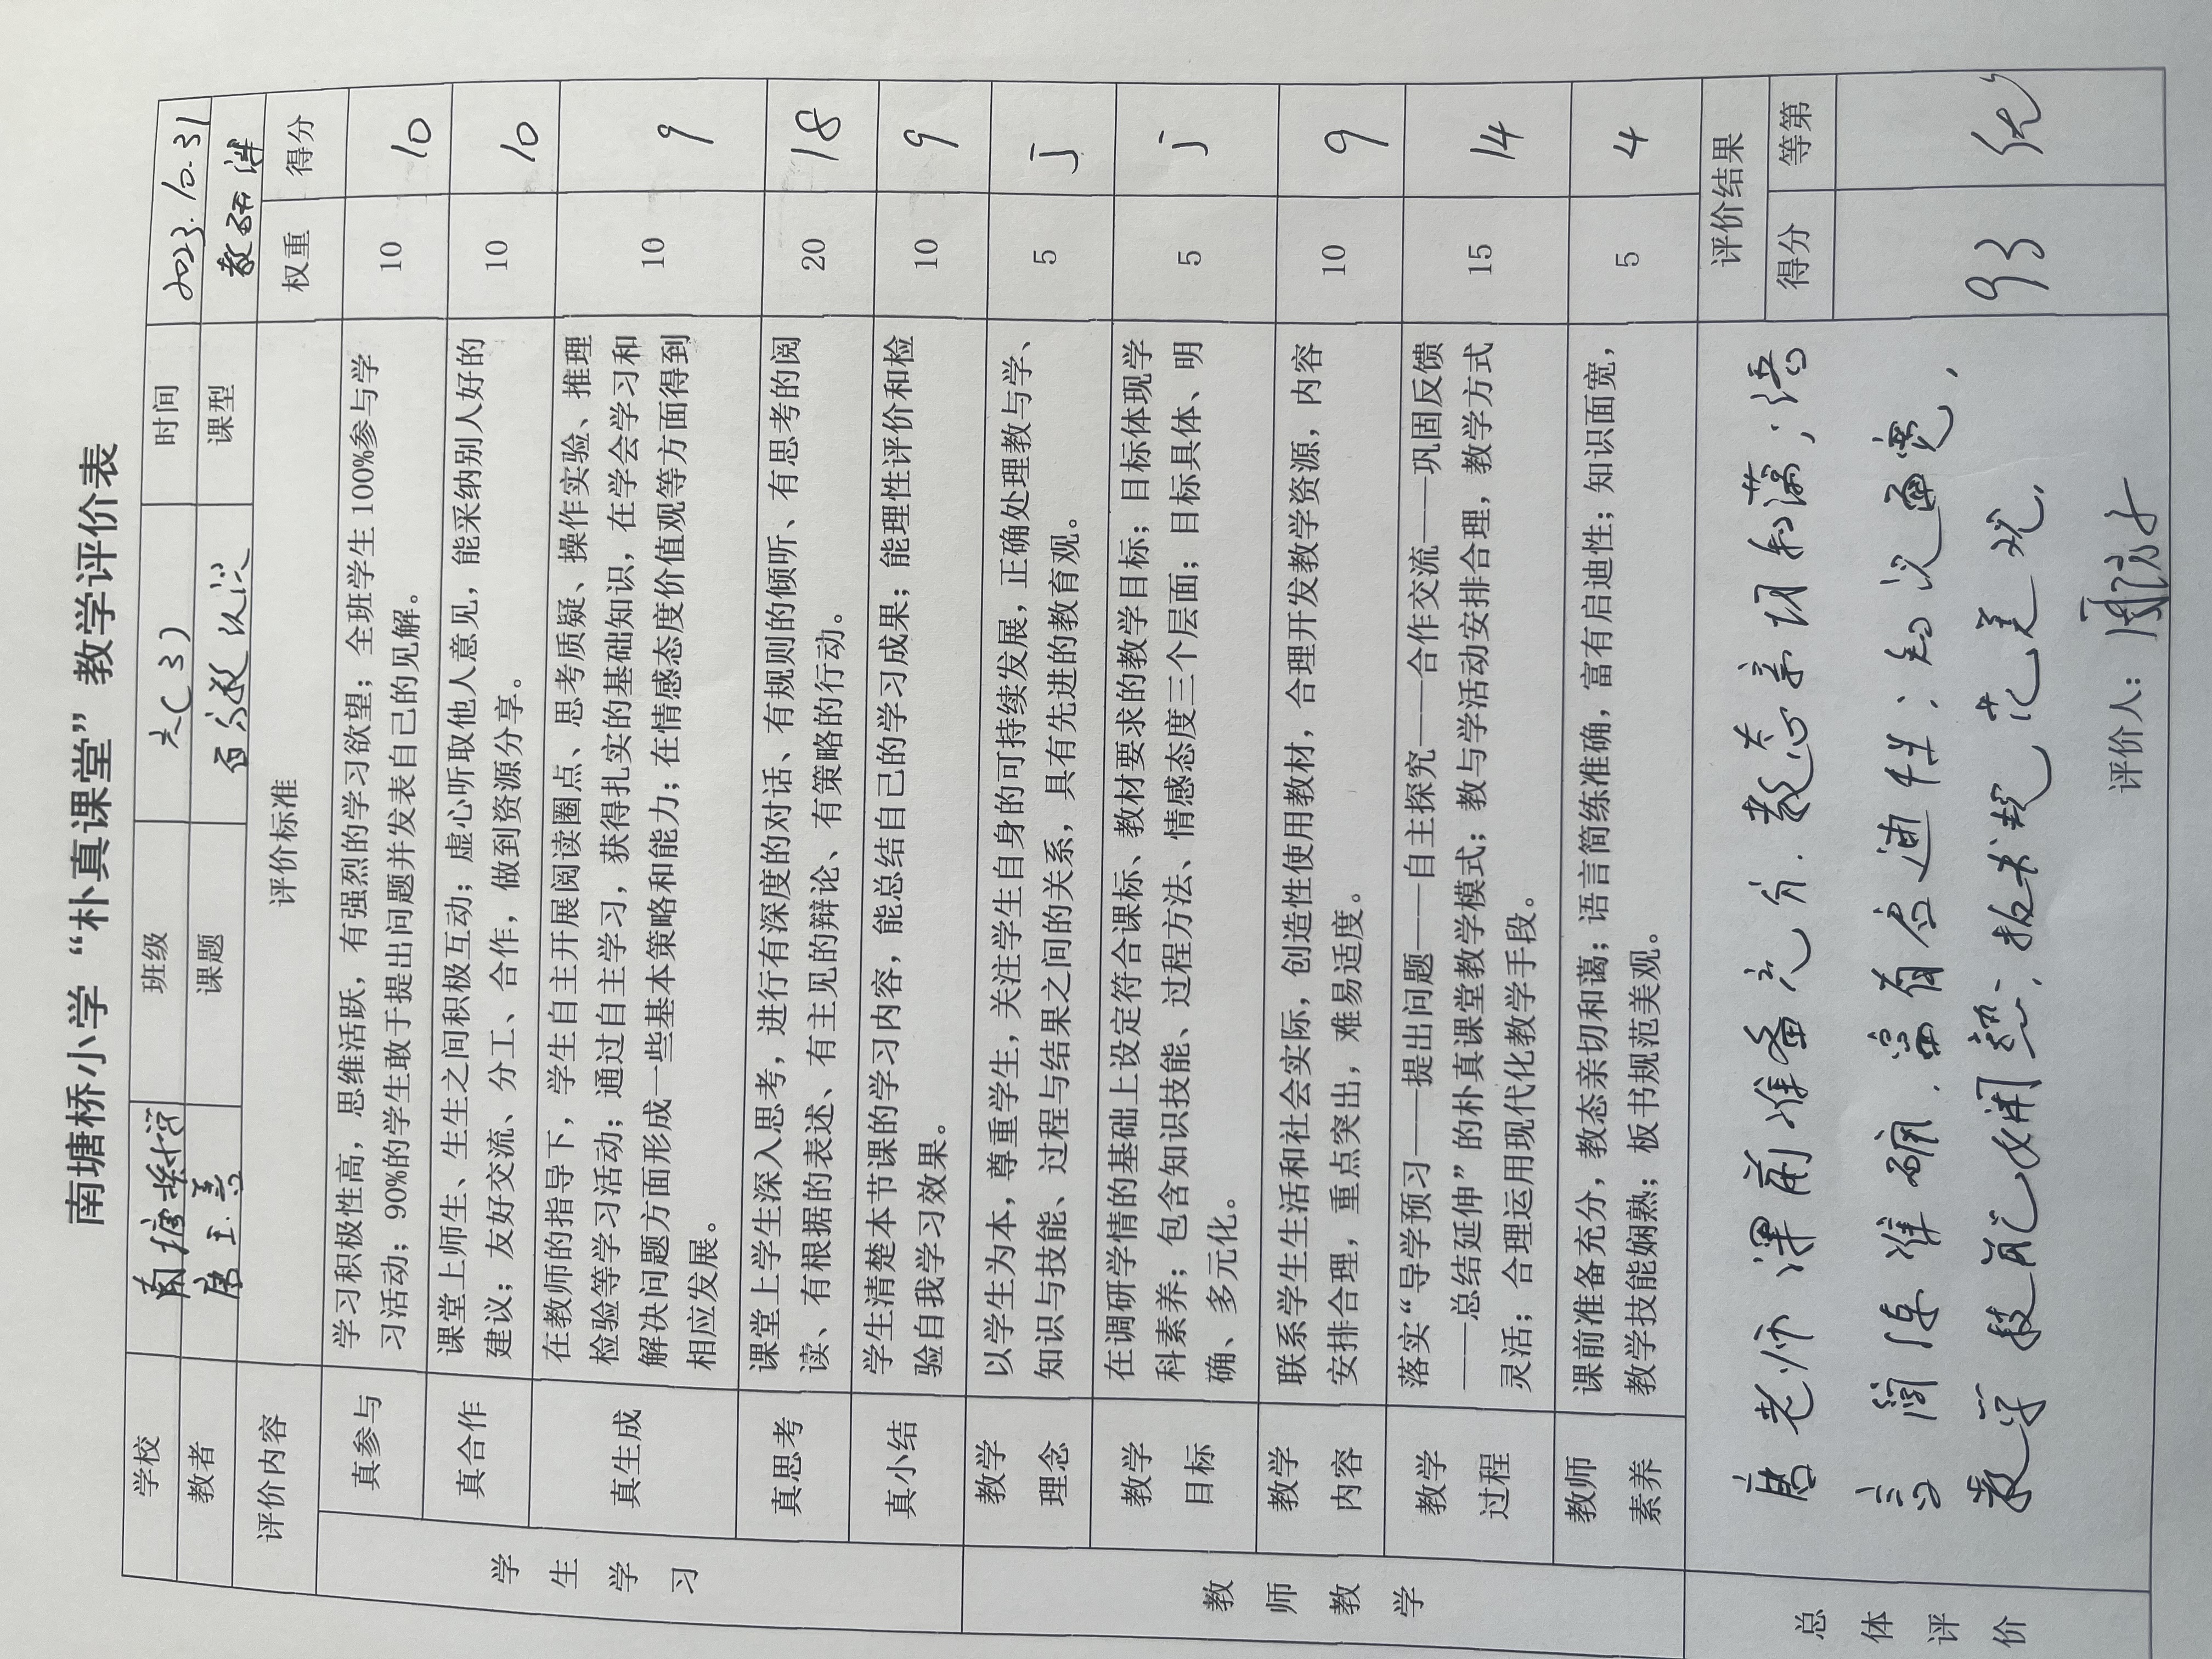 南塘桥小学“朴真课堂”教学评价表
学校 南塘桥小学 班级 六(3) 时间 2023.10.31
教者 唐玉 课题 百分数认识 课型 教研课
评价内容 评价标准 权重 得分
学生学习
真参与 学习积极性高，思维活跃，有强烈的学习欲望；全班学生100%参与学 10 10
习活动；90%的学生敢于提出问题并发表自己的见解。
真合作 课堂上师生、生生之间积极互动；虚心听取他人意见，能采纳别人好的 10 10
建议；友好交流、分工、合作，做到资源分享。
真生成 在教师的指导下，学生自主开展阅读圈点、思考质疑、操作实验、推理 10 9
检验等学习活动；通过自主学习，获得扎实的基础知识，在学会学习和
解决问题方面形成一些基本策略和能力；在情感态度价值观等方面得到
相应发展。
真思考 课堂上学生深入思考，进行有深度的对话、有规则的倾听、有思考的阅 20 18
读、有根据的表述、有主见的辩论、有策略的行动。
真小结 学生清楚本节课的学习内容，能总结自己的学习成果；能理性评价和检 10 9
验自我学习效果。
教师教学
教学理念 以学生为本，尊重学生，关注学生自身的可持续发展，正确处理教与学、 5 5
知识与技能、过程与结果之间的关系，具有先进的教育观。
教学目标 在调研学情的基础上设定符合课标、教材要求的教学目标；目标体现学 5 5
科素养；包含知识技能、过程方法、情感态度三个层面；目标具体、明
确、多元化。
教学内容 联系学生生活和社会实际，创造性使用教材，合理开发教学资源，内容 10 9
安排合理，重点突出，难易适度。
教学过程 落实“导学预习——提出问题——自主探究——合作交流——巩固反馈 15 14
——总结延伸”的朴真课堂教学模式；教与学活动安排合理，教学方式
灵活；合理运用现代化教学手段。
教师素养 课前准备充分，教态亲切和蔼；语言简练准确，富有启迪性；知识面宽， 5 4
教学技能娴熟；板书规范美观。
总体评价
唐老师课前准备充分，教态亲切和蔼；语
言简练准确，富有启迪性；知识面宽，
教学技能娴熟；板书规范美观，
评价人：
评价结果
得分 等第
93 优